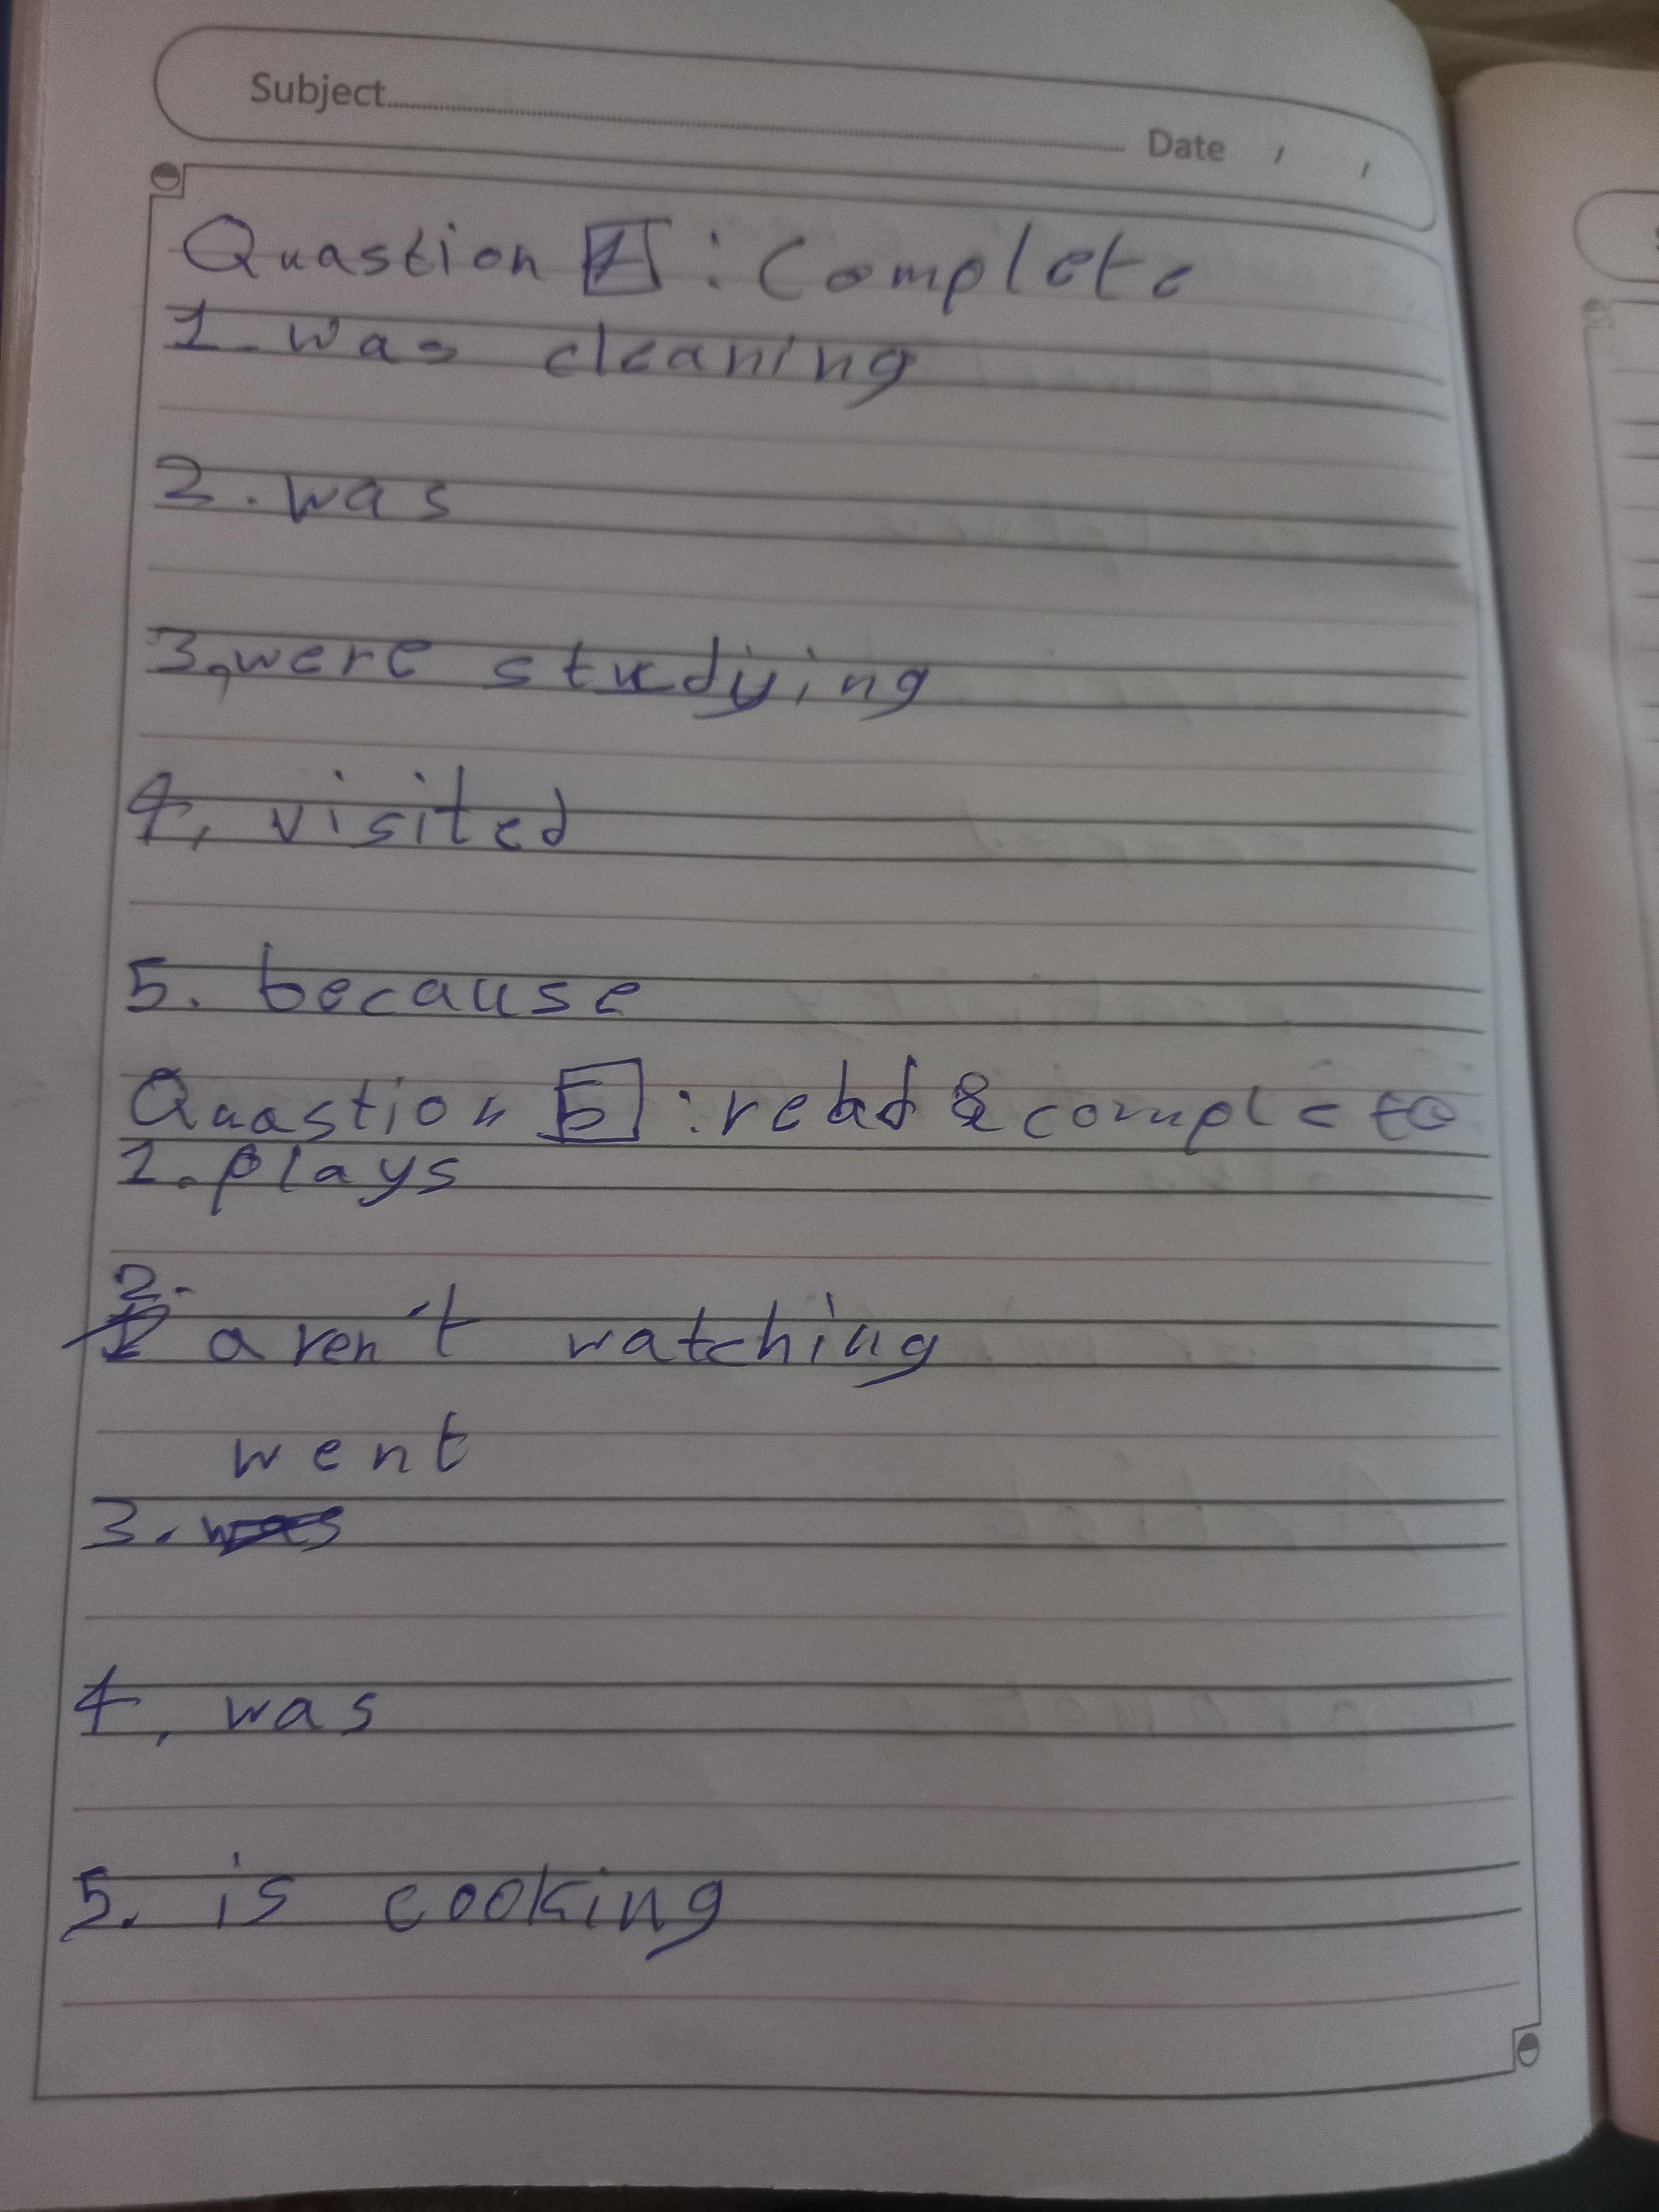 Subject
Date / /
Quastion 4 : Complete
1. was cleaning
2. was
3. were studying
4, visited
5. because
Quastion 5 : read & complete
1. plays
2.
aren't watching
went
3. was
4, was
5. is cooking